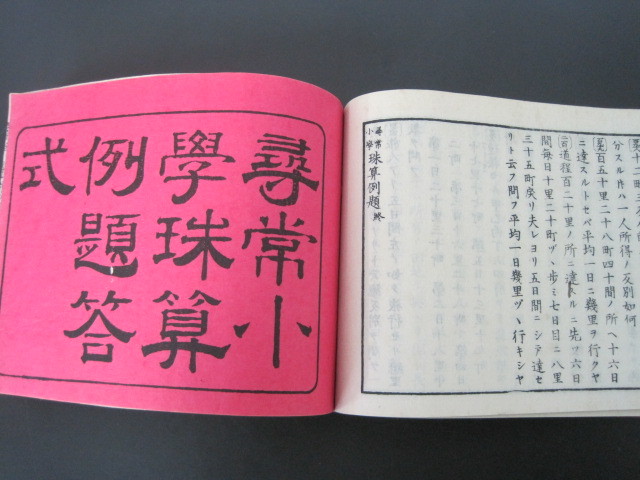 分スル片ハ一人所得ノ反別如何
百五十里二十八町四十間ノ所ヘ十六日
ニ達スルトセバ平均一日ニ幾里ヲ行クヤ
道程百二十里ノ所ニ達スルニ先ヅ六日
間每日十里二十町ヅヽ歩ミ七日目ニ八里
三十五町戾リ夫レヨリ五日間ニシテ達セ
リト云フ問フ平均一日幾里ヅヽ行キシヤ
尋常小學珠算例題終
尋常小
學珠算
例題答
式